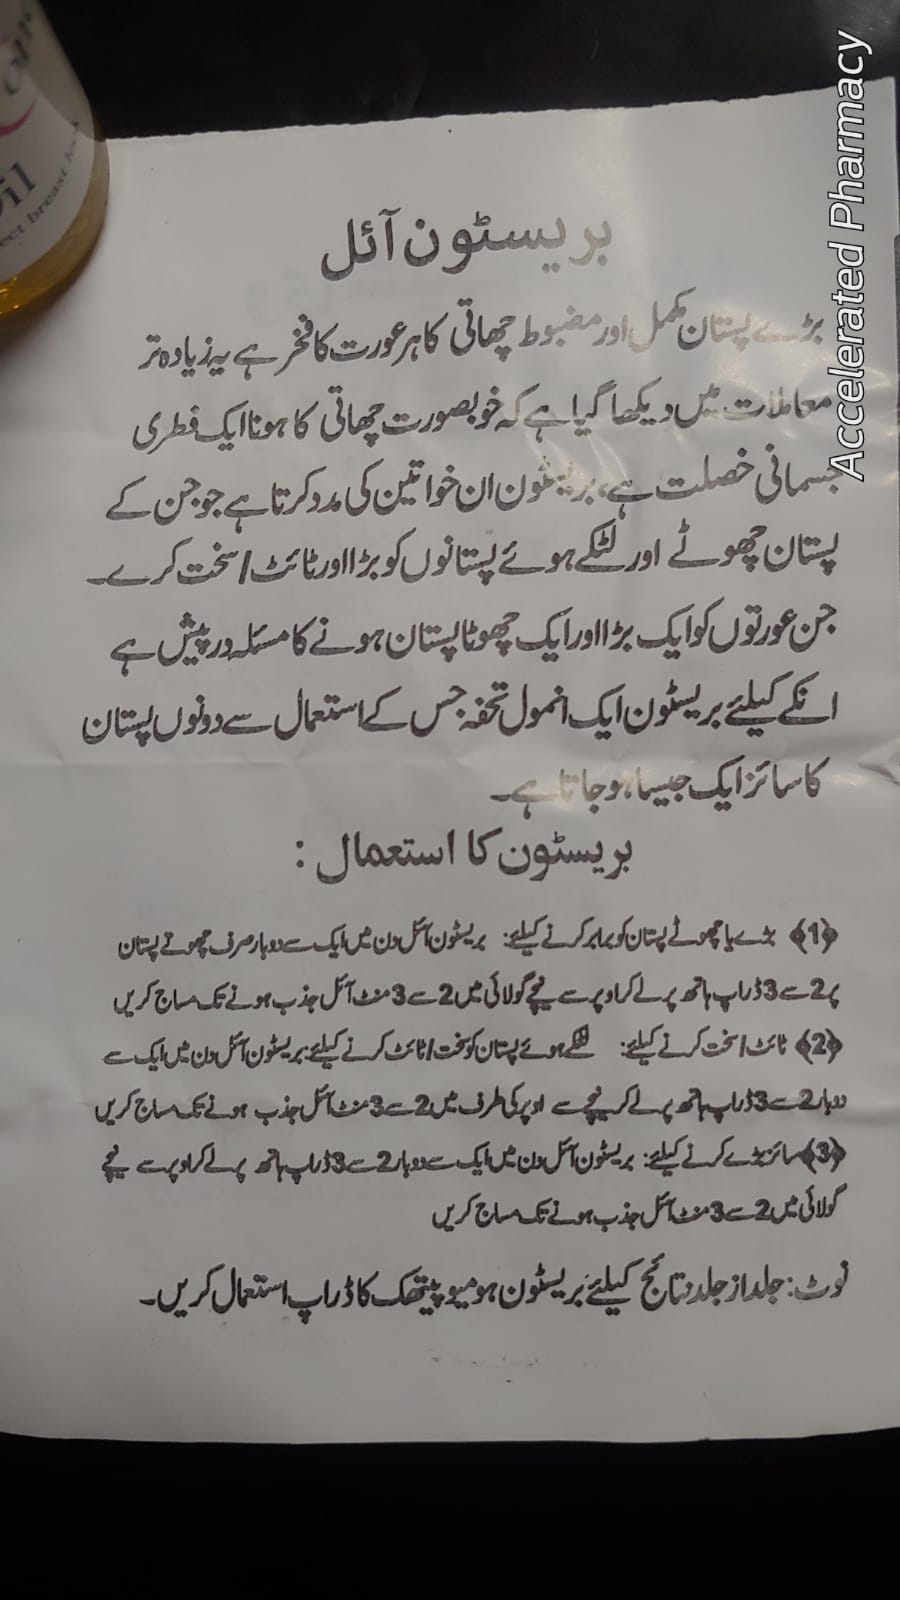 Accelerated Pharmacy
oil
ect breast
بریسٹون آئل
بڑے پستان مکمل اور مضبوط چھاتی کا ہر عورت کا فخر ہے یہ زیادہ تر
معاملات میں دیکھا گیا ہے کہ خوبصورت چھاتی کا ہونا ایک فطری
جسمانی خصلت ہے، بریسٹون ان خواتین کی مدد کرتا ہے جو جن کے
پستان چھوٹے اور لٹکے ہوئے پستانوں کو بڑا اور ٹائٹ / سخت کرے۔
جن عورتوں کو ایک بڑا اور ایک چھوٹا پستان ہونے کا مسئلہ درپیش ہے
انکے کیلئے بریسٹون ایک انمول تحفہ جس کے استعمال سے دونوں پستان
کا سائز ایک جیسا ہو جاتا ہے۔
بریسٹون کا استعمال :
﴿1﴾ بڑے یا چھوٹے پستان کو برابر کرنے کیلئے: بریسٹون آئل دن میں ایک سے دو بار صرف چھوٹے پستان
پر 2 سے 3 ڈراپ ہاتھ پر لے کر اوپر سے نیچے گولائی میں 2 سے 3 منٹ آئل جذب ہونے تک مساج کریں
﴿2﴾ ٹائٹ / سخت کرنے کیلئے: لٹکے ہوئے پستان کو سخت / ٹائٹ کرنے کیلئے بریسٹون آئل دن میں ایک سے
دو بار 2 سے 3 ڈراپ ہاتھ پر لے کر نیچے سے اوپر کی طرف میں 2 سے 3 منٹ آئل جذب ہونے تک مساج کریں
﴿3﴾ سائز بڑے کرنے کیلئے: بریسٹون آئل دن میں ایک سے دو بار 2 سے 3 ڈراپ ہاتھ پر لے کر اوپر سے نیچے
گولائی میں 2 سے 3 منٹ آئل جذب ہونے تک مساج کریں
نوٹ: جلد از جلد نتائج کیلئے بریسٹون ہومیوپیتھک کا ڈراپ استعمال کریں۔